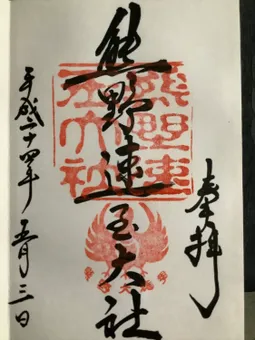 奉拝
熊野速玉大社
平成二十四年五月三日
熊野速玉大社